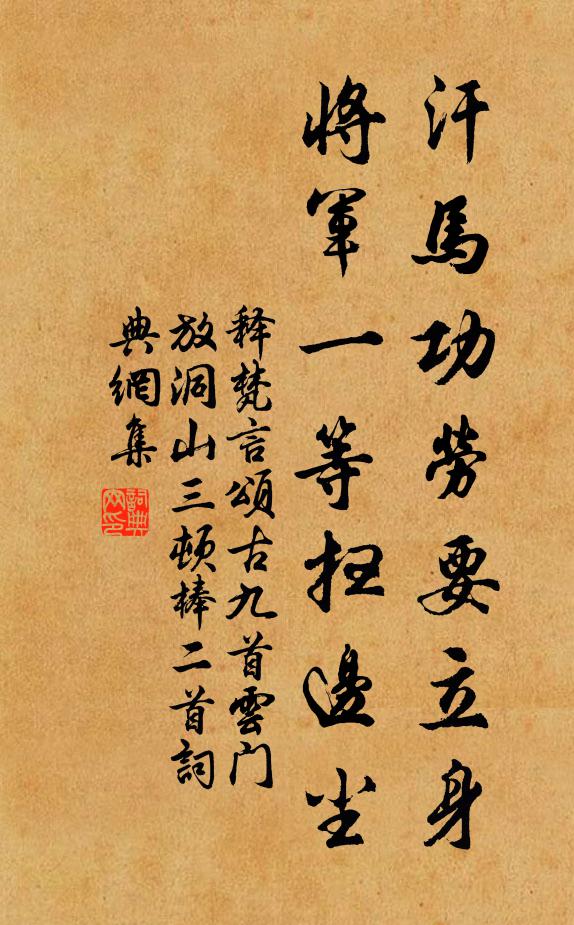 汗馬功勞要立身
將軍一等抂邊尘
释梵言頌古九首雲门
放洞山三頓棒二首詞
典網集
詞典
网印